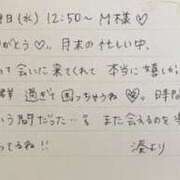 日(水) 12:50〜 M様♡
がとう♡。月末の忙しい中、
って会いに来てくれて 本当に嬉しか
鮮 過ぎて困っちゃうね ♡。時間
いう間だった…。また会えるのを楽
ってるね!! 湊より